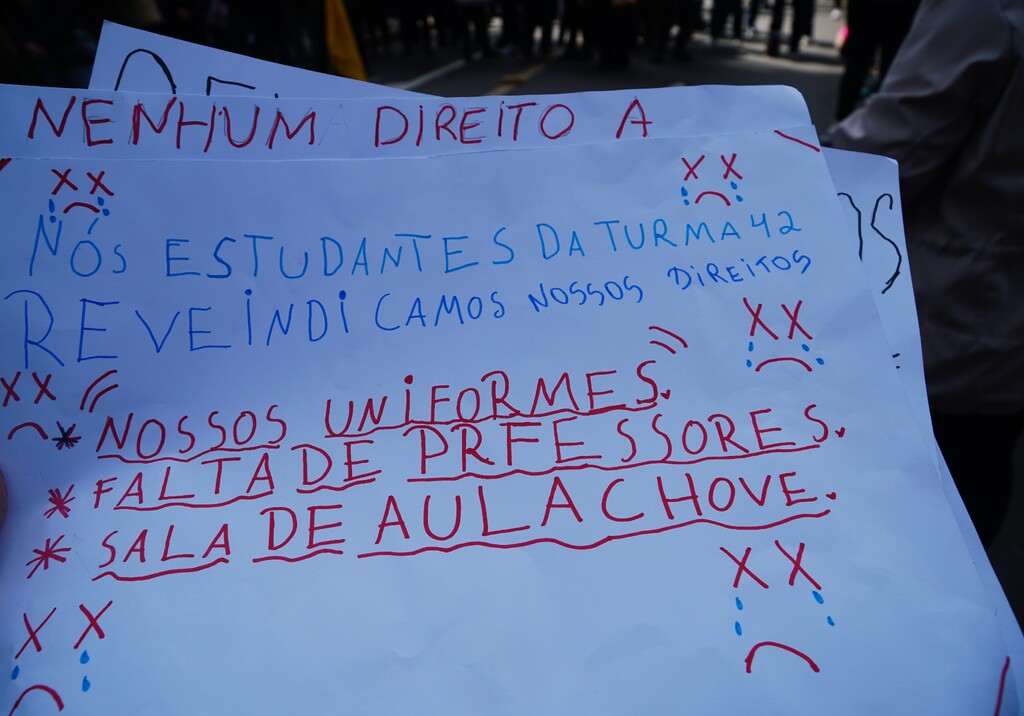 NENHUM DIREITO A
NÓS ESTUDANTES DA TURMA 42
REVEINDICAMOS NOSSOS DIREITOS
* NOSSOS UNIFORMES.
* FALTA DE PRFESSORES.
* SALA DE AULA CHOVE.